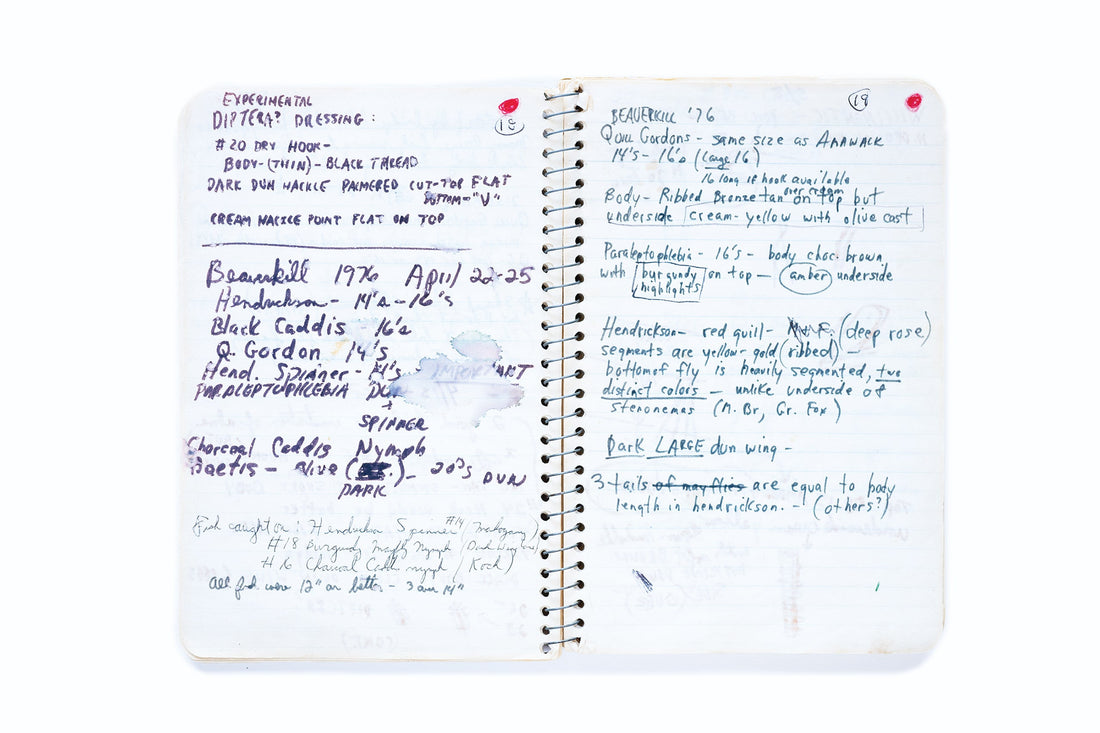 EXPERIMENTAL
DIPTERA? DRESSING:
18
#20 DRY HOOK-
BODY-(THIN)-BLACK THREAD
DARK DUN HACKLE PALMERED CUT-TOP FLAT
BOTTOM-"V"
CREAM HACKLE POINT FLAT ON TOP
Beaverkill 1976 April 22-25
Hendrickson- 14's-16's
Black Caddis - 16's
Q. Gordon 14's
Hend. Spinner - 14's
PARALEPTOPHLEBIA DUN
+
SPINNER
Charcoal Caddis Nymph
Baetis - olive ( )- 20's DUN
DARK
Fish caught on: Hendrickson Spinner #14 (Mahogany)
#18 Burgundy Nymph
#16 Charcoal Caddis nymph (Rock)
All fish were 12" or better - 3 over 14"
19
BEAVERKILL '76
Quill Gordons - same size as AMAWALK
14's - 16's (large 16)
16 long if hook available
Body - Ribbed Bronze tan over cream on top but
underside cream-yellow with olive cast
Paraleptophlebia - 16's - body choc. brown
with burgundy highlights on top - amber underside
Hendrickson - red quill - (deep rose)
segments are yellow-gold (ribbed) -
bottom of fly is heavily segmented, two
distinct colors - unlike underside of
stenonemas (M. Br, Gr. Fox)
Dark LARGE dun wing -
3 tails of mayflies are equal to body
length in hendrickson. - (others?)